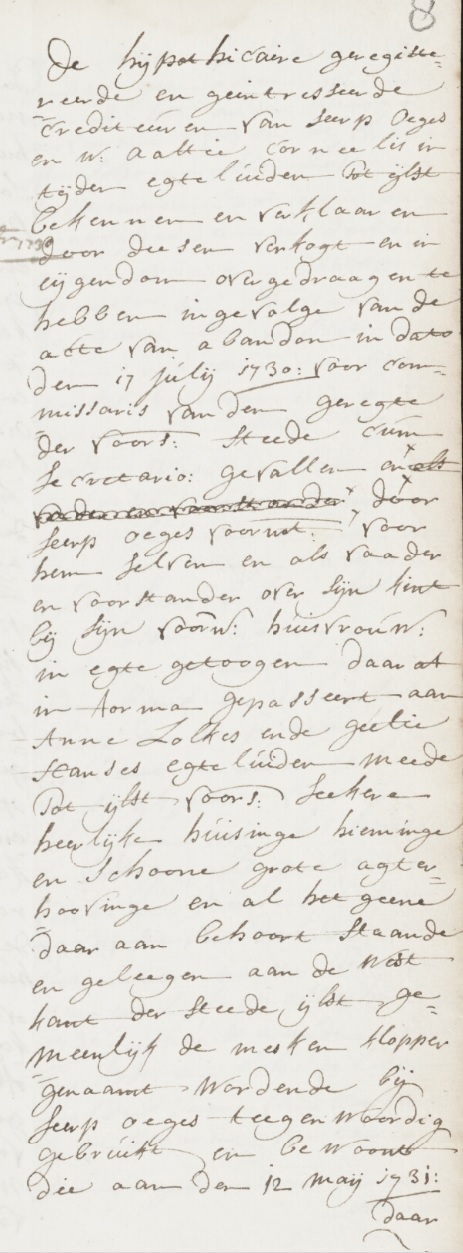 8
De hijpothicaire geregiste=
reerde en geintresseerde
crediteuren van Seerp Oeges
en w: Aaltie Cornelis in
tijden egteluiden tot ijlst
bekennen en verklaaren
1730
door deesen verkogt en in
eijgendom overgedraagen te
hebben ingevolge van de
acte van abandon in dato
den 17 julij 1730: voor com=
missaris van den geregte
der voors: steede cum
Secretario: gevallen en als
door
Seerp Oeges voornt: voor
hem selven en als vaader
en voorstander over sijn kint
bij sijn voorn: huisvrouw:
in egte getoogen daar at
in forma gepasseert aan
Anne Lolkes ende geertie
Hanses egteluiden meede
tot ijlst voors: seekere
heerlijke huisinge hieminge
en schoone grote agter=
hoovinge en al het geene
daar aan behoort staande
en geleegen aan de west
kant der steede ijlst ge=
meenlijk de mesken klopper
genaamt wordende bij
Seerp Oeges teegenwoordig
gebruikt en bewoont
die aan den 12 maij 1731:
daar